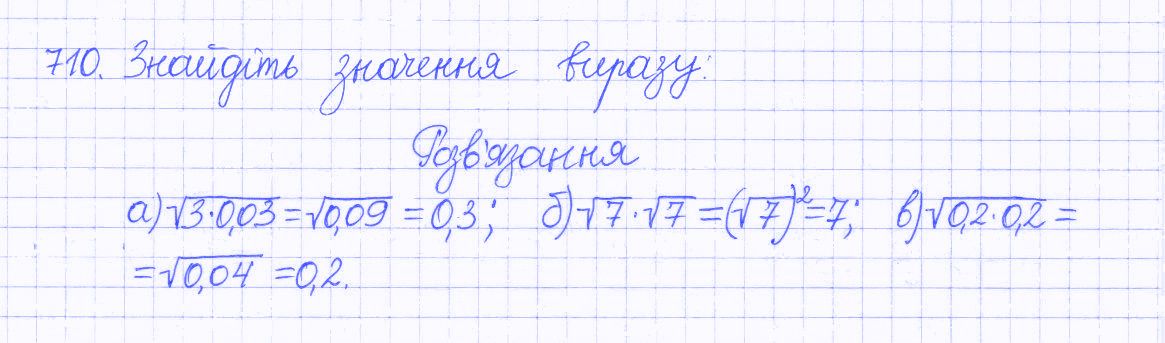 710. Знайдіть значення виразу:
Розв'язання
а) √3·0,03 = √0,09 = 0,3; б) √7·√7 = (√7)² = 7; в) √0,2·0,2 =
= √0,04 = 0,2.